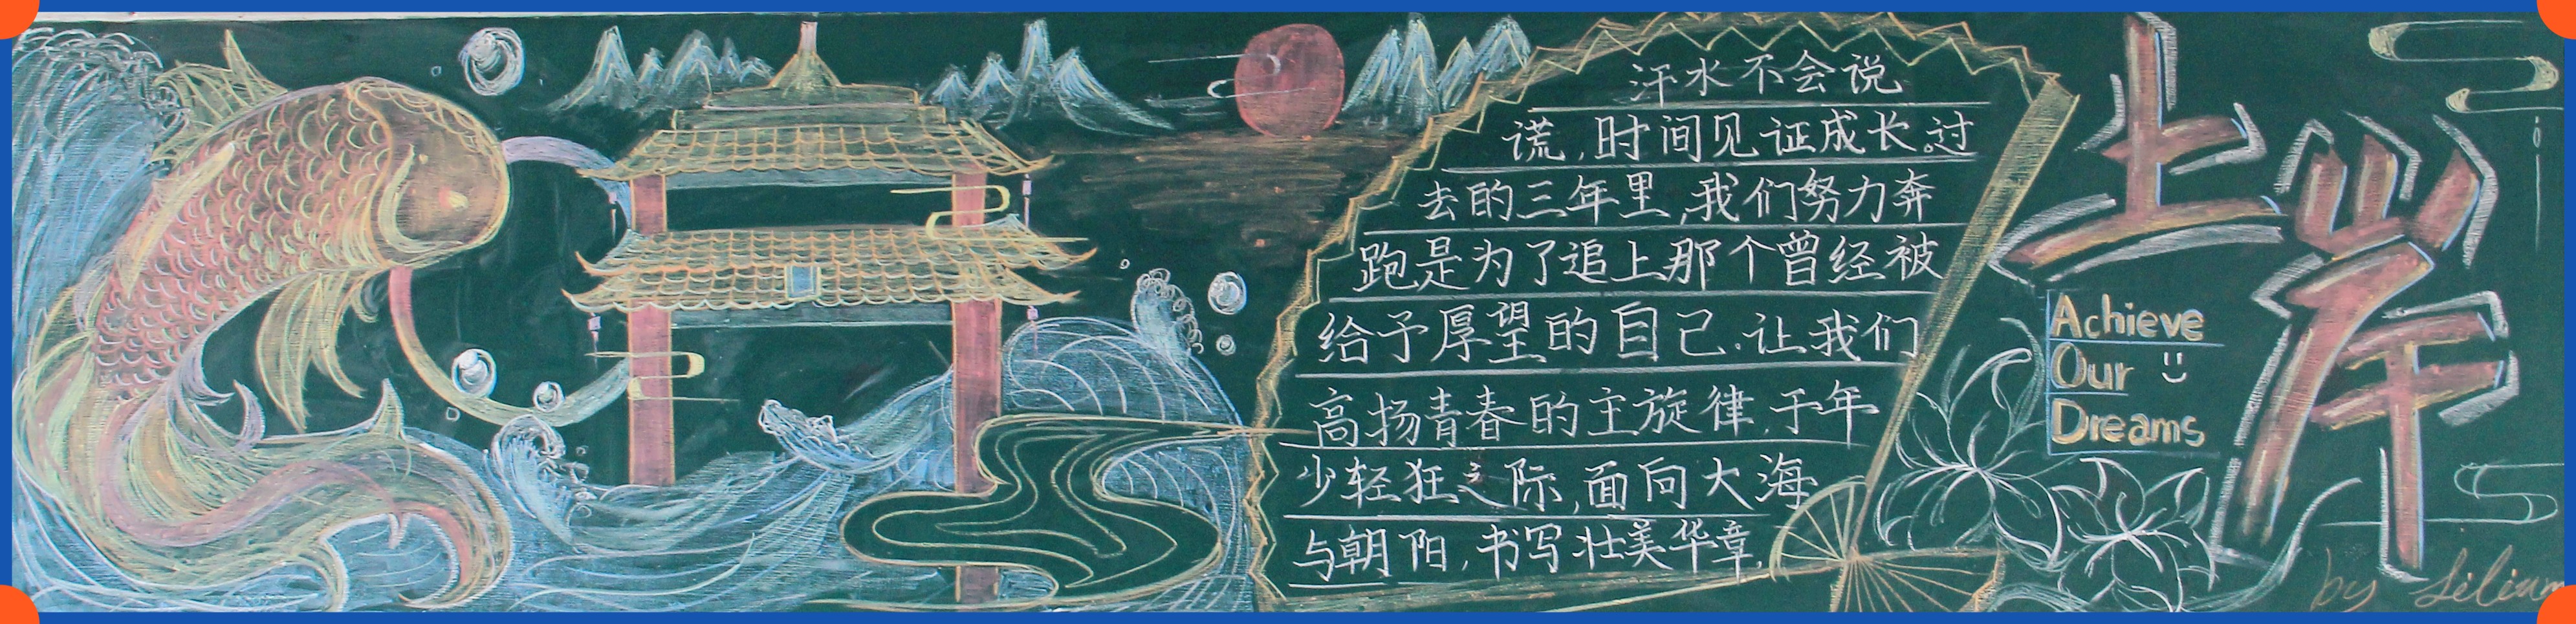 汗水不会说
谎,时间见证成长。过
去的三年里,我们努力奔
跑是为了追上那个曾经被
给予厚望的自己.让我们
高扬青春的主旋律,于年
少轻狂之际,面向大海
与朝阳,书写壮美华章.
上岸
Achieve
Our
Dreams
by Lilium